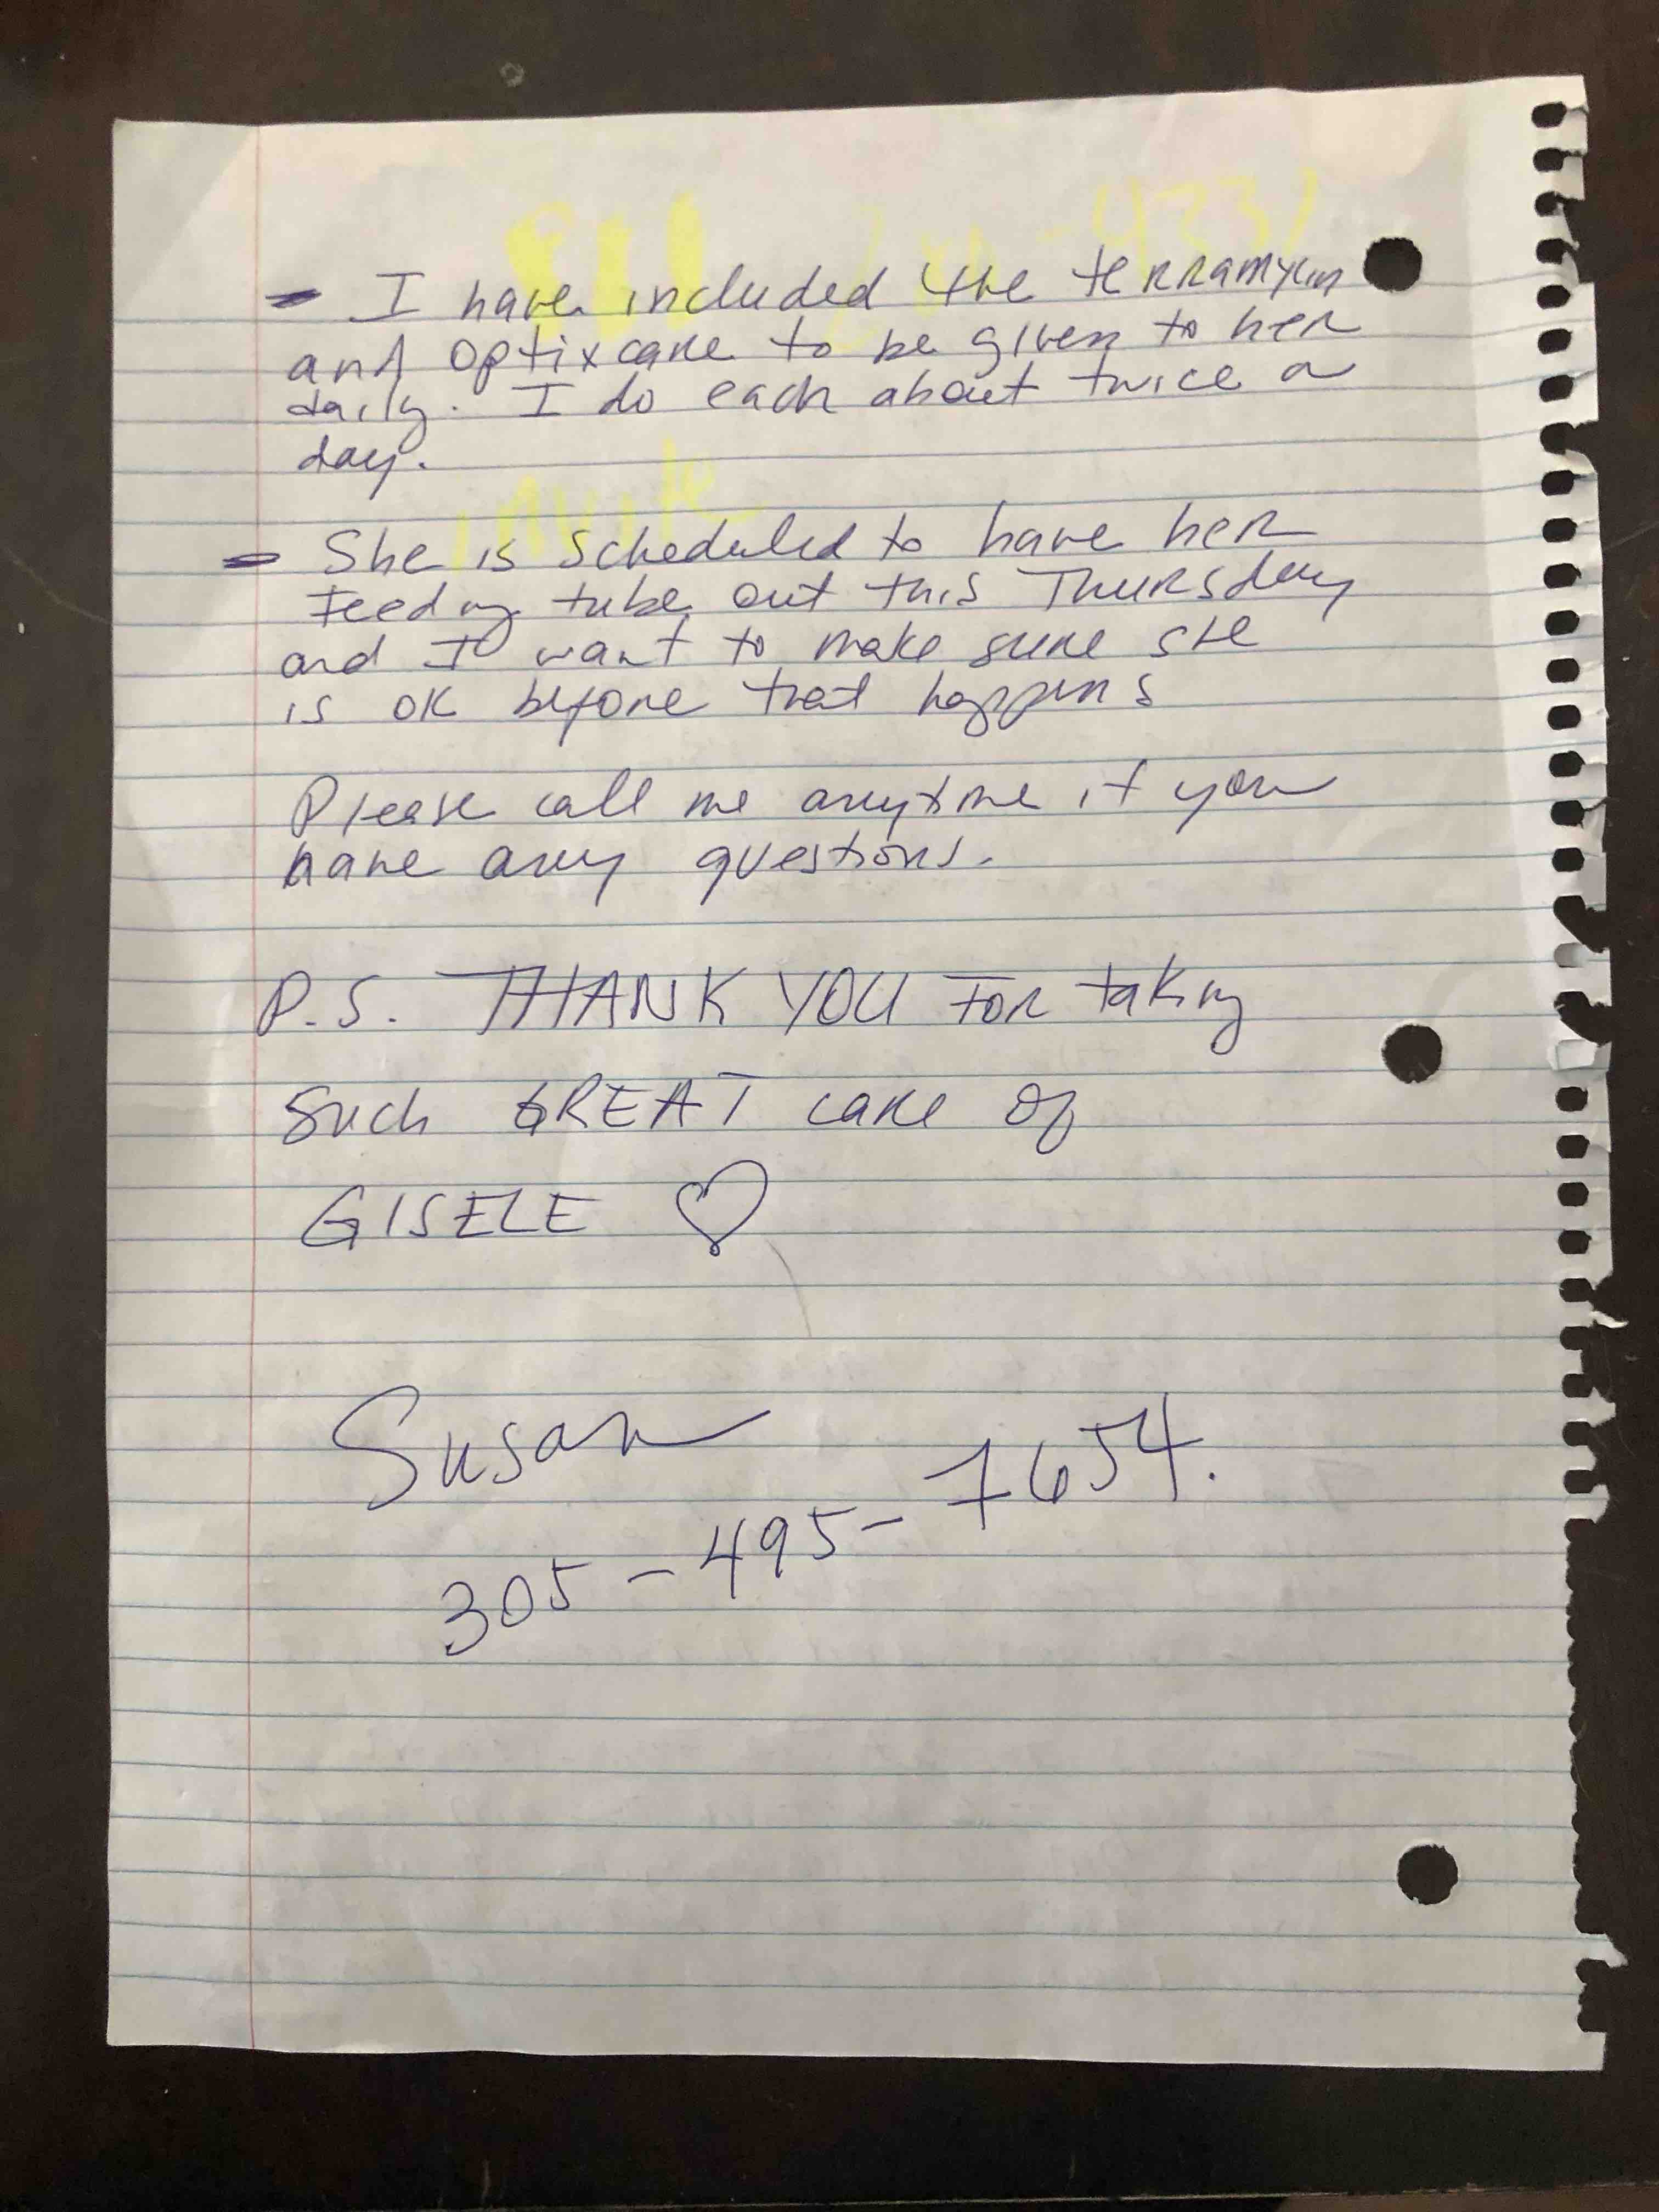 - I have included the terramycin
and optixcare to be given to her
daily. I do each about twice a
day.
- She is scheduled to have her
feeding tube out this Thursday
and I want to make sure she
is ok before that happens
Please call me anytime if you
have any questions.
P.S. THANK YOU for taking
such GREAT care of
GISELE ♡
Susan
305-495-7654.